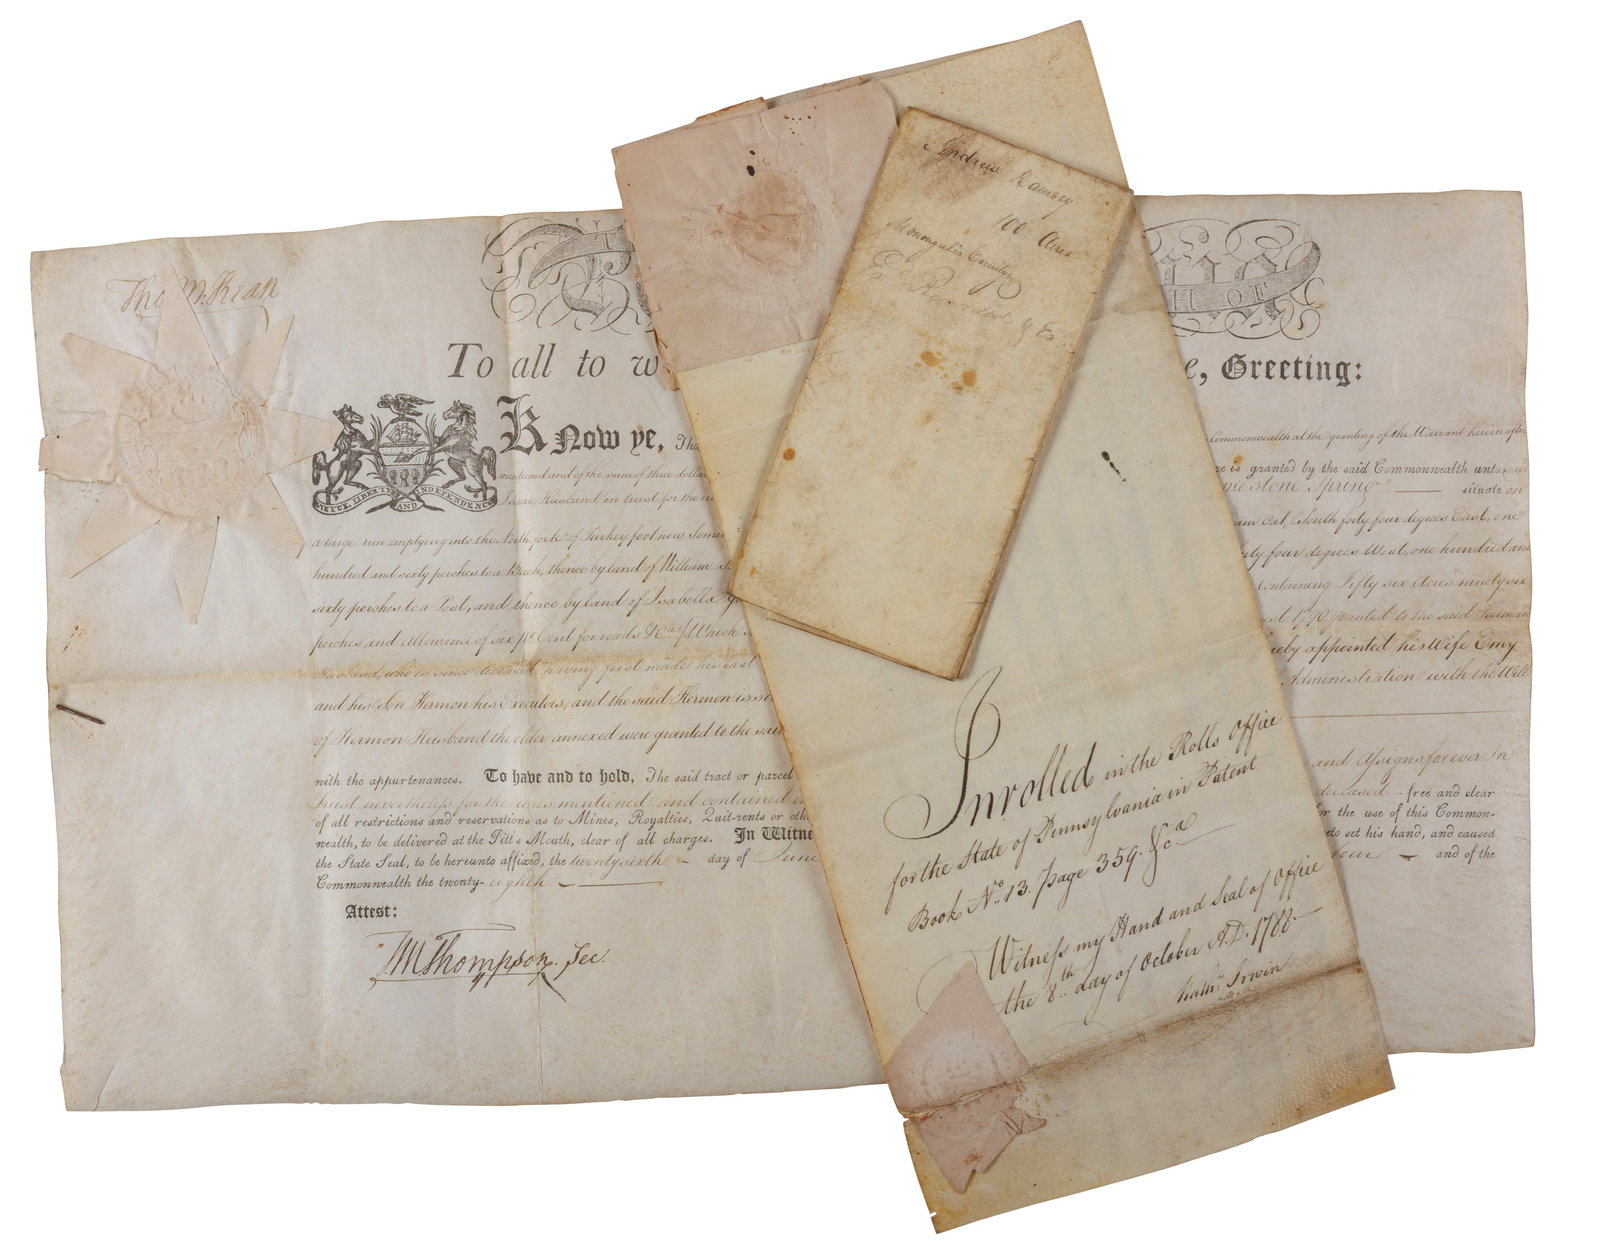 Tho M:Kean
TH OF
To all to w
e, Greeting:
VIRTUE, LIBERTY AND INDEPENDENCE
Know ye, Tha
Commonwealth at the granting of the Warrant herein after
mentioned and of the sum of three dollar
re is granted by the said Commonwealth unto said
Isaac Husband in trust for the
stone Spring" situate on
a large run emptying into the North fork of Turkey foot now Somer
Oak, South forty four degrees East, one
hundred and sixty perches to a Beech, thence by land of William
ty four degrees West, one hundred and
sixty perches to a Post, and thence by land of Isabella
containing Fifty six Acres ninety six
perches and allowance of six pr Cent for roads &ca/ Which
1790 granted to the said Herman
Husband, who is since deceased having first made his last
reby appointed his Wife Emy
and his Son Hermon his Executors, and the said Hermon is
Administration with the Will
of Hermon Husband the elder annexed were granted to the said
with the appurtenances. To have and to hold, The said tract or parcel
and Assigns forever In
Trust nevertheless for the uses mentioned and contained in
deceased. - free and clear
of all restrictions and reservations as to Mines, Royalties, Quit-rents or othe
for the use of this Common-
wealth, to be delivered at the Pitt's Mouth, clear of all charges. In Witne
eto set his hand, and caused
the State Seal, to be hereunto affixed, the twenty sixth day of June
four and of the
Commonwealth the twenty-eighth
Attest:
TM Thompson. Sec.
Andrew Ramsey
100 Acres
Monongalia County
Ex Recorded &
Inrolled in the Rolls Office
for the State of Pennsylvania in Patent
Book No. 13. page 359. &ca
Witness my Hand and Seal of Office
the 8th day of October A.D. 1788
Mathw. Irwin